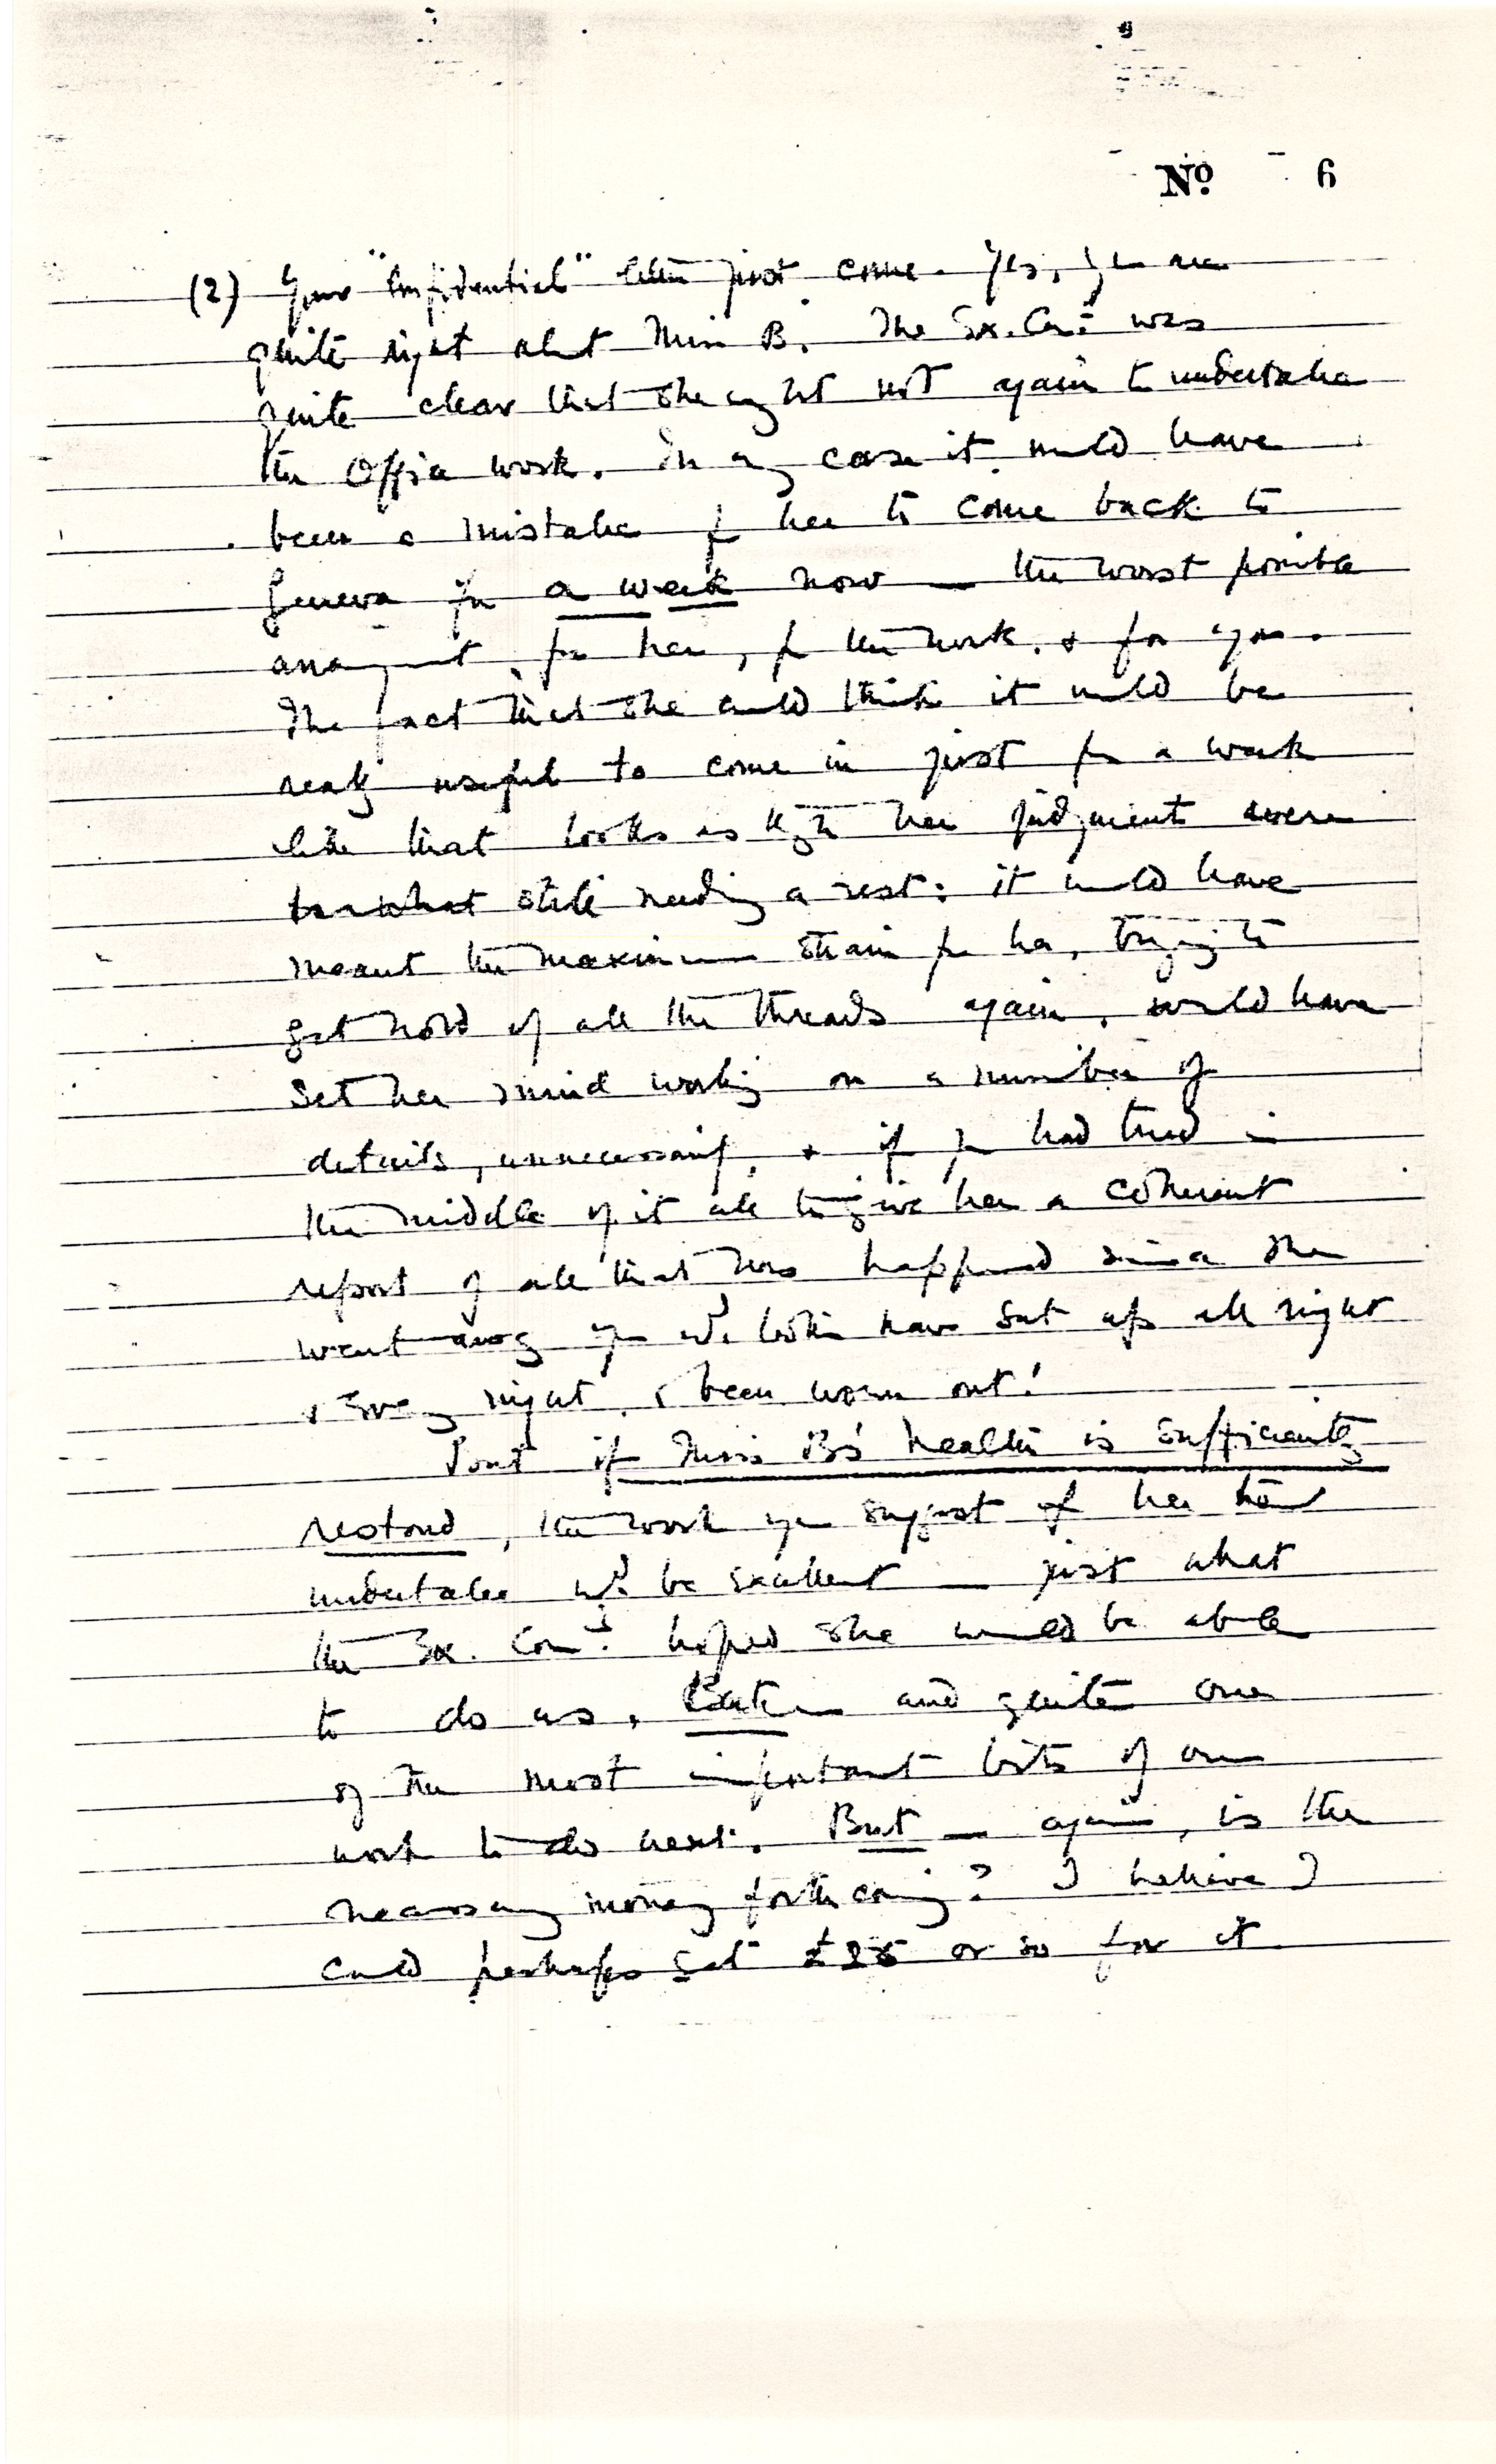 No 6
(2) Your "Confidential" letter just come. Yes, you are
quite right abt Miss B. The Ex. Ctee was
quite clear that she ought not again to undertake
the Office work. In any case it would have
been a mistake for her to come back to
Geneva for a week now — the worst possible
arrangement, for her, for the work, & for you.
The fact that she could think it would be
really useful to come in just for a week
like that looks as tho' her judgment were
somewhat still needing a rest: it would have
meant the maximum strain for her, trying to
get hold of all the threads again, would have
set her mind working on a number of
details, unnecessarily, & if you had tried in
the middle of it all to give her a coherent
report of all that has happened since she
went away you wd. both have sat up all night
& every night, & been worn out!
But if Miss B's health is sufficiently
restored, the work you suggest of her
undertake wd. be excellent — just what
the Ex. Com. hoped she would be able
to do us, and quite one
of the most important bits of our
work to do next. But — again, is the
necessary money forthcoming? I believe I
could perhaps get £25 or so for it